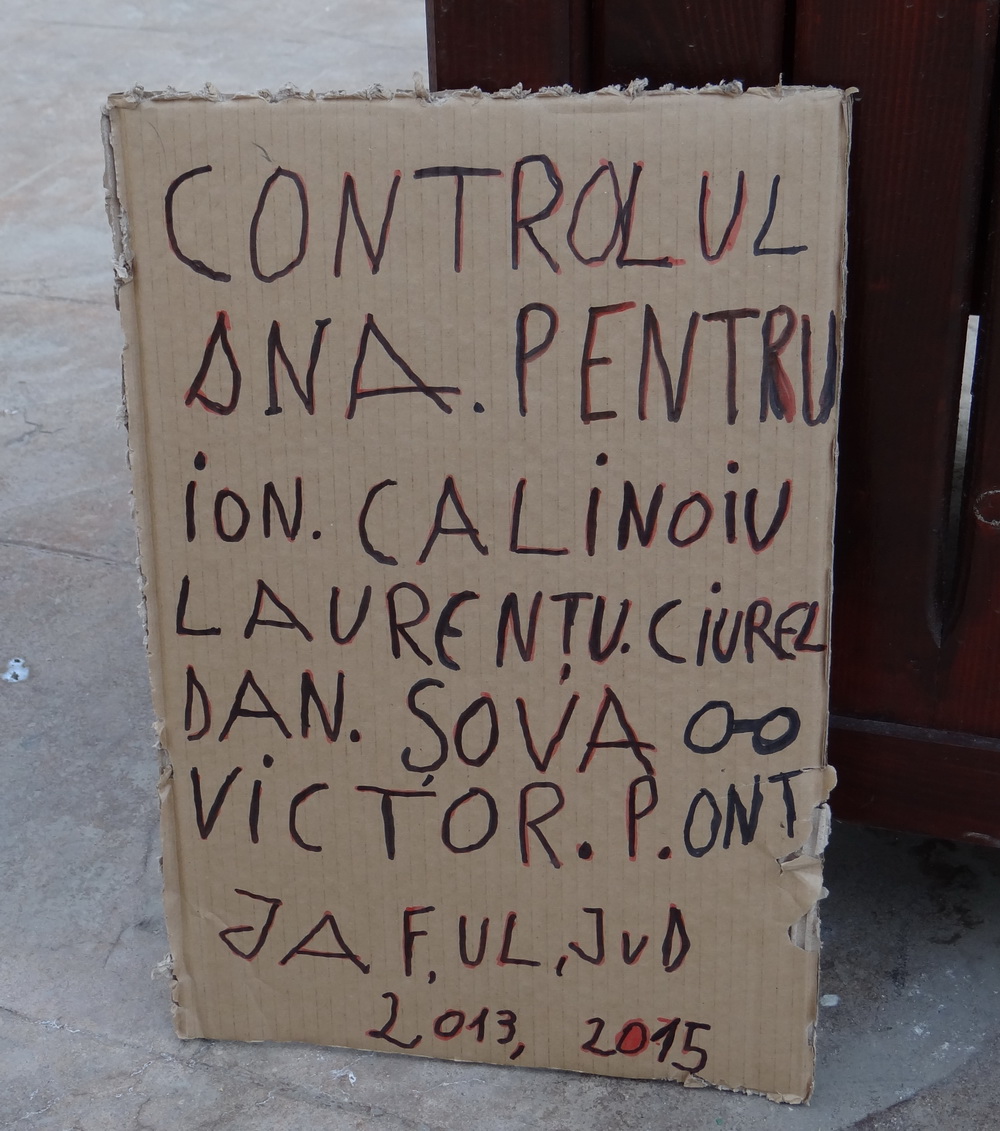 CONTROLUL
DNA. PENTRU
iON. CALiNOiU
LAURENȚU. CiUREL
DAN. ȘOVA
ViCTOR. P. ONT
JAF,UL, JUD
2,013, 2015